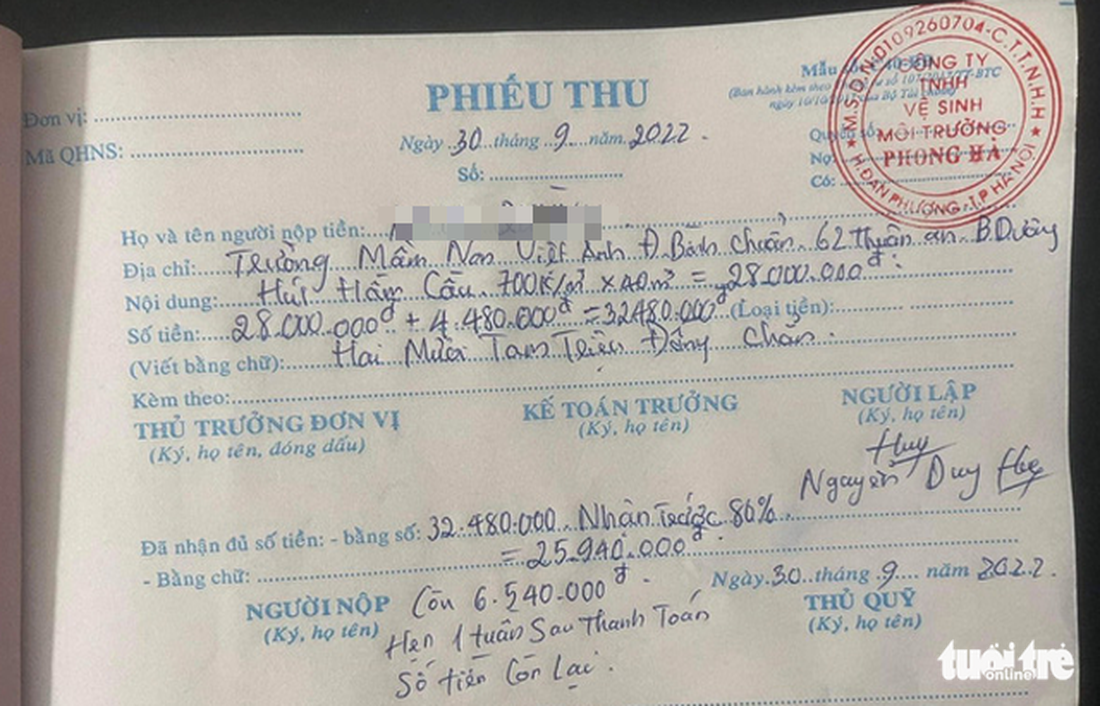 Đơn vị:
Mã QHNS:
PHIẾU THU
Ngày 30 tháng 9 năm 2022.
Số:
Mẫu số
(Ban hành kèm theo
ngày 10/10/2017 của Bộ Tài chính)
Quyển số:
Nợ:
Có:
M.S.D.N:0109260704-C.T.T.N.H.H
CÔNG TY
TNHH
VỆ SINH
MÔI TRƯỜNG
PHONG HÀ
H.ĐAN PHƯỢNG-T.P HÀ NỘI
Họ và tên người nộp tiền:
Địa chỉ: Trường Mầm Non Việt Anh Đ. Bình Chuẩn, 62 Thuận an B.Dương
Nội dung: Hút Hầm Cầu. 700K/m³ x 40m³ = 28.000.000đ.
Số tiền: 28.000.000đ + 4.480.000đ = 32480.000đ (Loại tiền):
(Viết bằng chữ): Hai Mươi Tam Triệu Đồng Chẵn.
Kèm theo:
THỦ TRƯỞNG ĐƠN VỊ
(Ký, họ tên, đóng dấu)
KẾ TOÁN TRƯỞNG
(Ký, họ tên)
NGƯỜI LẬP
(Ký, họ tên)
Huy
Nguyễn Duy
Đã nhận đủ số tiền: - bằng số: 32.480.000. Nhận Trước 80%.
= 25.940.000đ.
- Bằng chữ:
Ngày 30 tháng 9 năm 2022.
NGƯỜI NỘP
(Ký, họ tên)
Còn 6.540.000đ.
Hẹn 1 tuần Sau Thanh Toán
Số tiền Còn Lại.
THỦ QUỸ
(Ký, họ tên)
tuổi trẻ
online